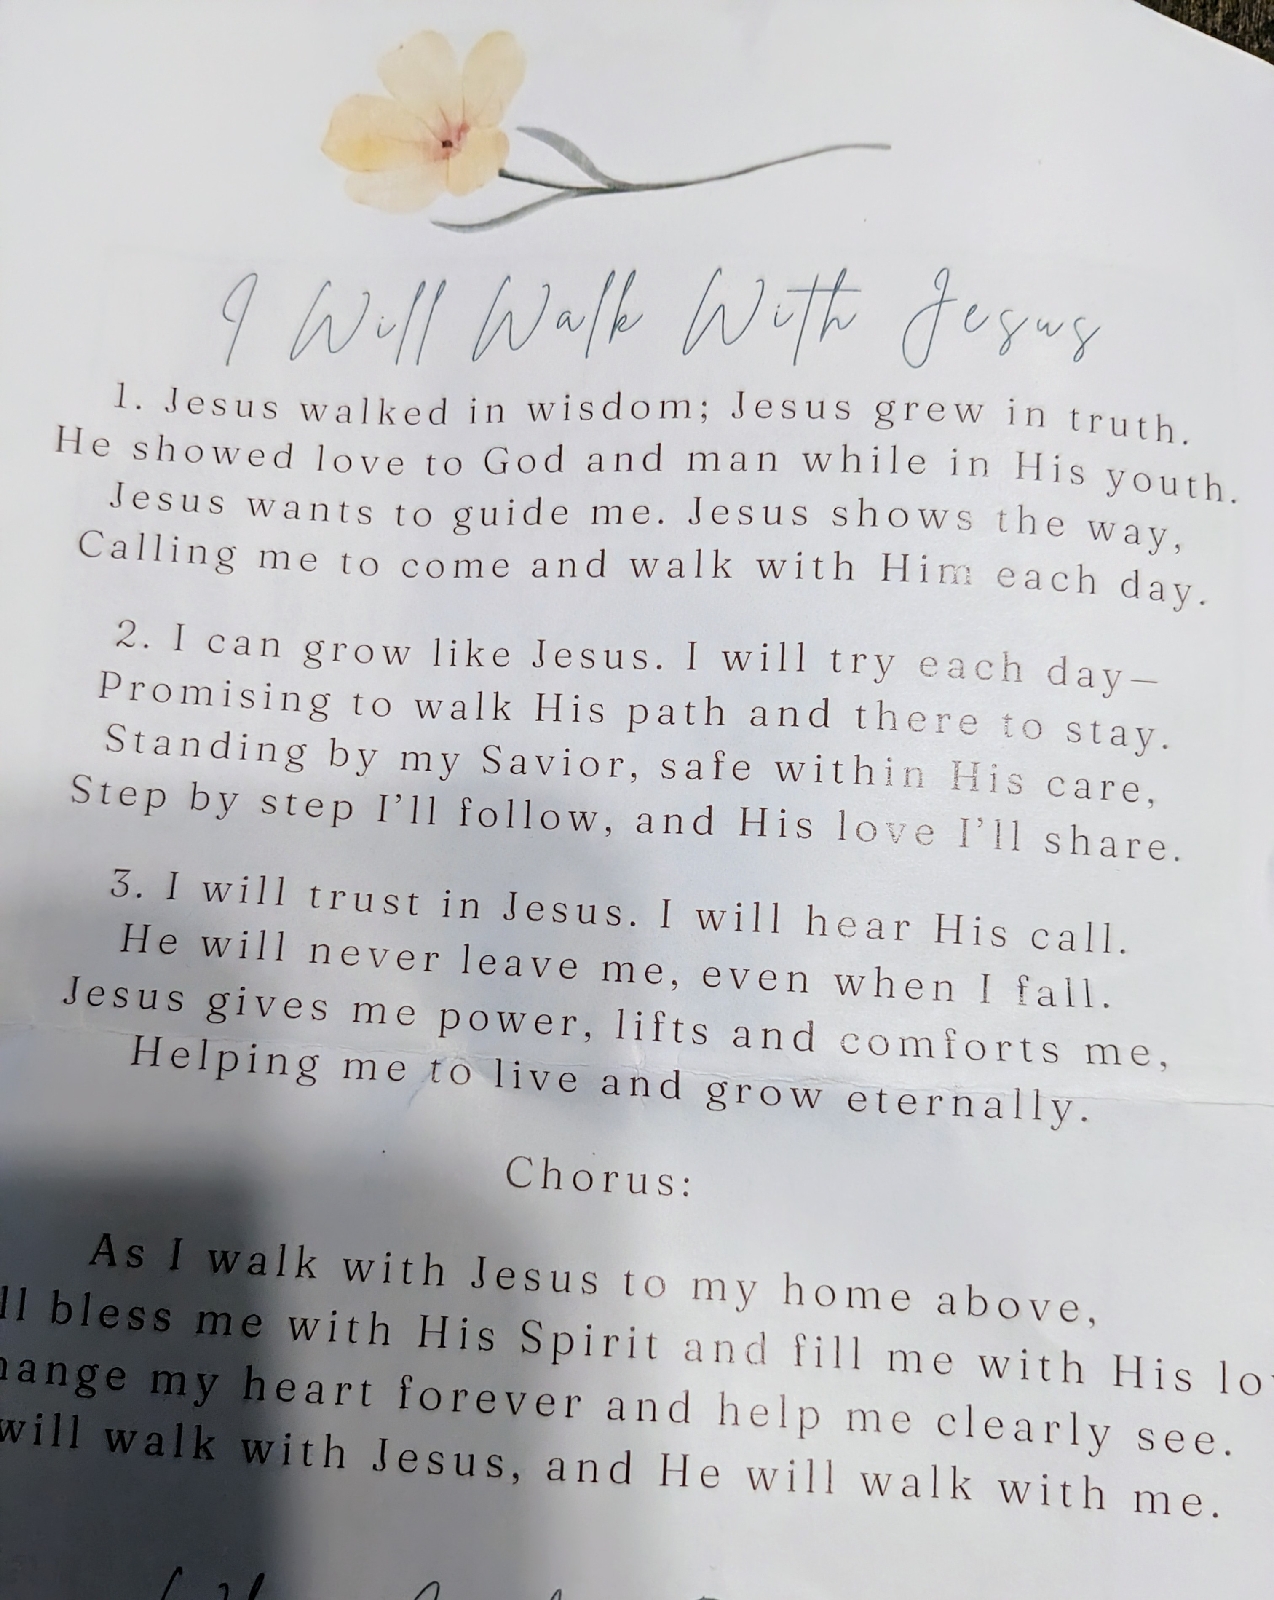 I Will Walk With Jesus
1. Jesus walked in wisdom; Jesus grew in truth.
He showed love to God and man while in His youth.
Jesus wants to guide me. Jesus shows the way,
Calling me to come and walk with Him each day.
2. I can grow like Jesus. I will try each day—
Promising to walk His path and there to stay.
Standing by my Savior, safe within His care,
Step by step I'll follow, and His love I'll share.
3. I will trust in Jesus. I will hear His call.
He will never leave me, even when I fall.
Jesus gives me power, lifts and comforts me,
Helping me to live and grow eternally.
Chorus:
As I walk with Jesus to my home above,
ll bless me with His Spirit and fill me with His lo
hange my heart forever and help me clearly see.
will walk with Jesus, and He will walk with me.